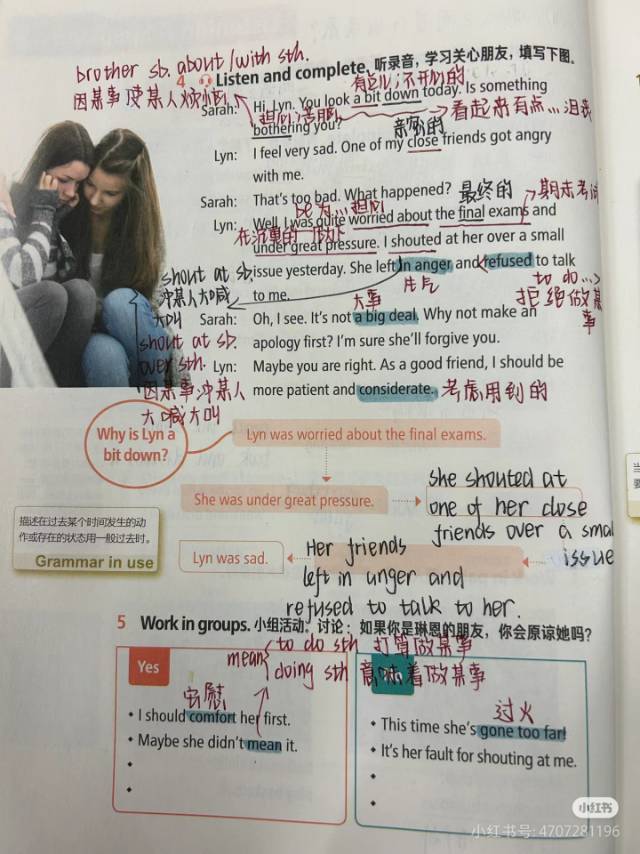 brother sb. about/with sth.
因某事使某人烦恼
4 Listen and complete. 听录音，学习关心朋友，填写下图。
有点儿不开心的
Sarah: Hi, Lyn. You look a bit down today. Is something
bothering you?
看起来有点…沮丧
亲密的
Lyn: I feel very sad. One of my close friends got angry
with me.
Sarah: That's too bad. What happened?
最终的
期末考试
Lyn: Well, I was quite worried about the final exams and
在沉重的
under great pressure. I shouted at her over a small
shout at sb.
冲某人大喊
大叫
issue yesterday. She left in anger and refused to talk
生气
to do...
拒绝做某
事
to me.
大事
Sarah: Oh, I see. It's not a big deal. Why not make an
apology first? I'm sure she'll forgive you.
shout at sb.
over sth.
因某事冲某人
大喊大叫
Lyn: Maybe you are right. As a good friend, I should be
more patient and considerate.
考虑周到的
Why is Lyn a
bit down?
Lyn was worried about the final exams.
She was under great pressure.
she shouted at
one of her close
friends over a small
issue
描述在过去某个时间发生的动
作或存在的状态用一般过去时。
Grammar in use
Her friends
left in anger and
refused to talk to her.
Lyn was sad.
5 Work in groups. 小组活动。讨论：如果你是琳恩的朋友，你会原谅她吗？
mean
to do sth 打算做某事
doing sth 意味着做某事
Yes
安慰
• I should comfort her first.
• Maybe she didn't mean it.
过火
• This time she's gone too far!
• It's her fault for shouting at me.
小红书
小红书号: 4707281196